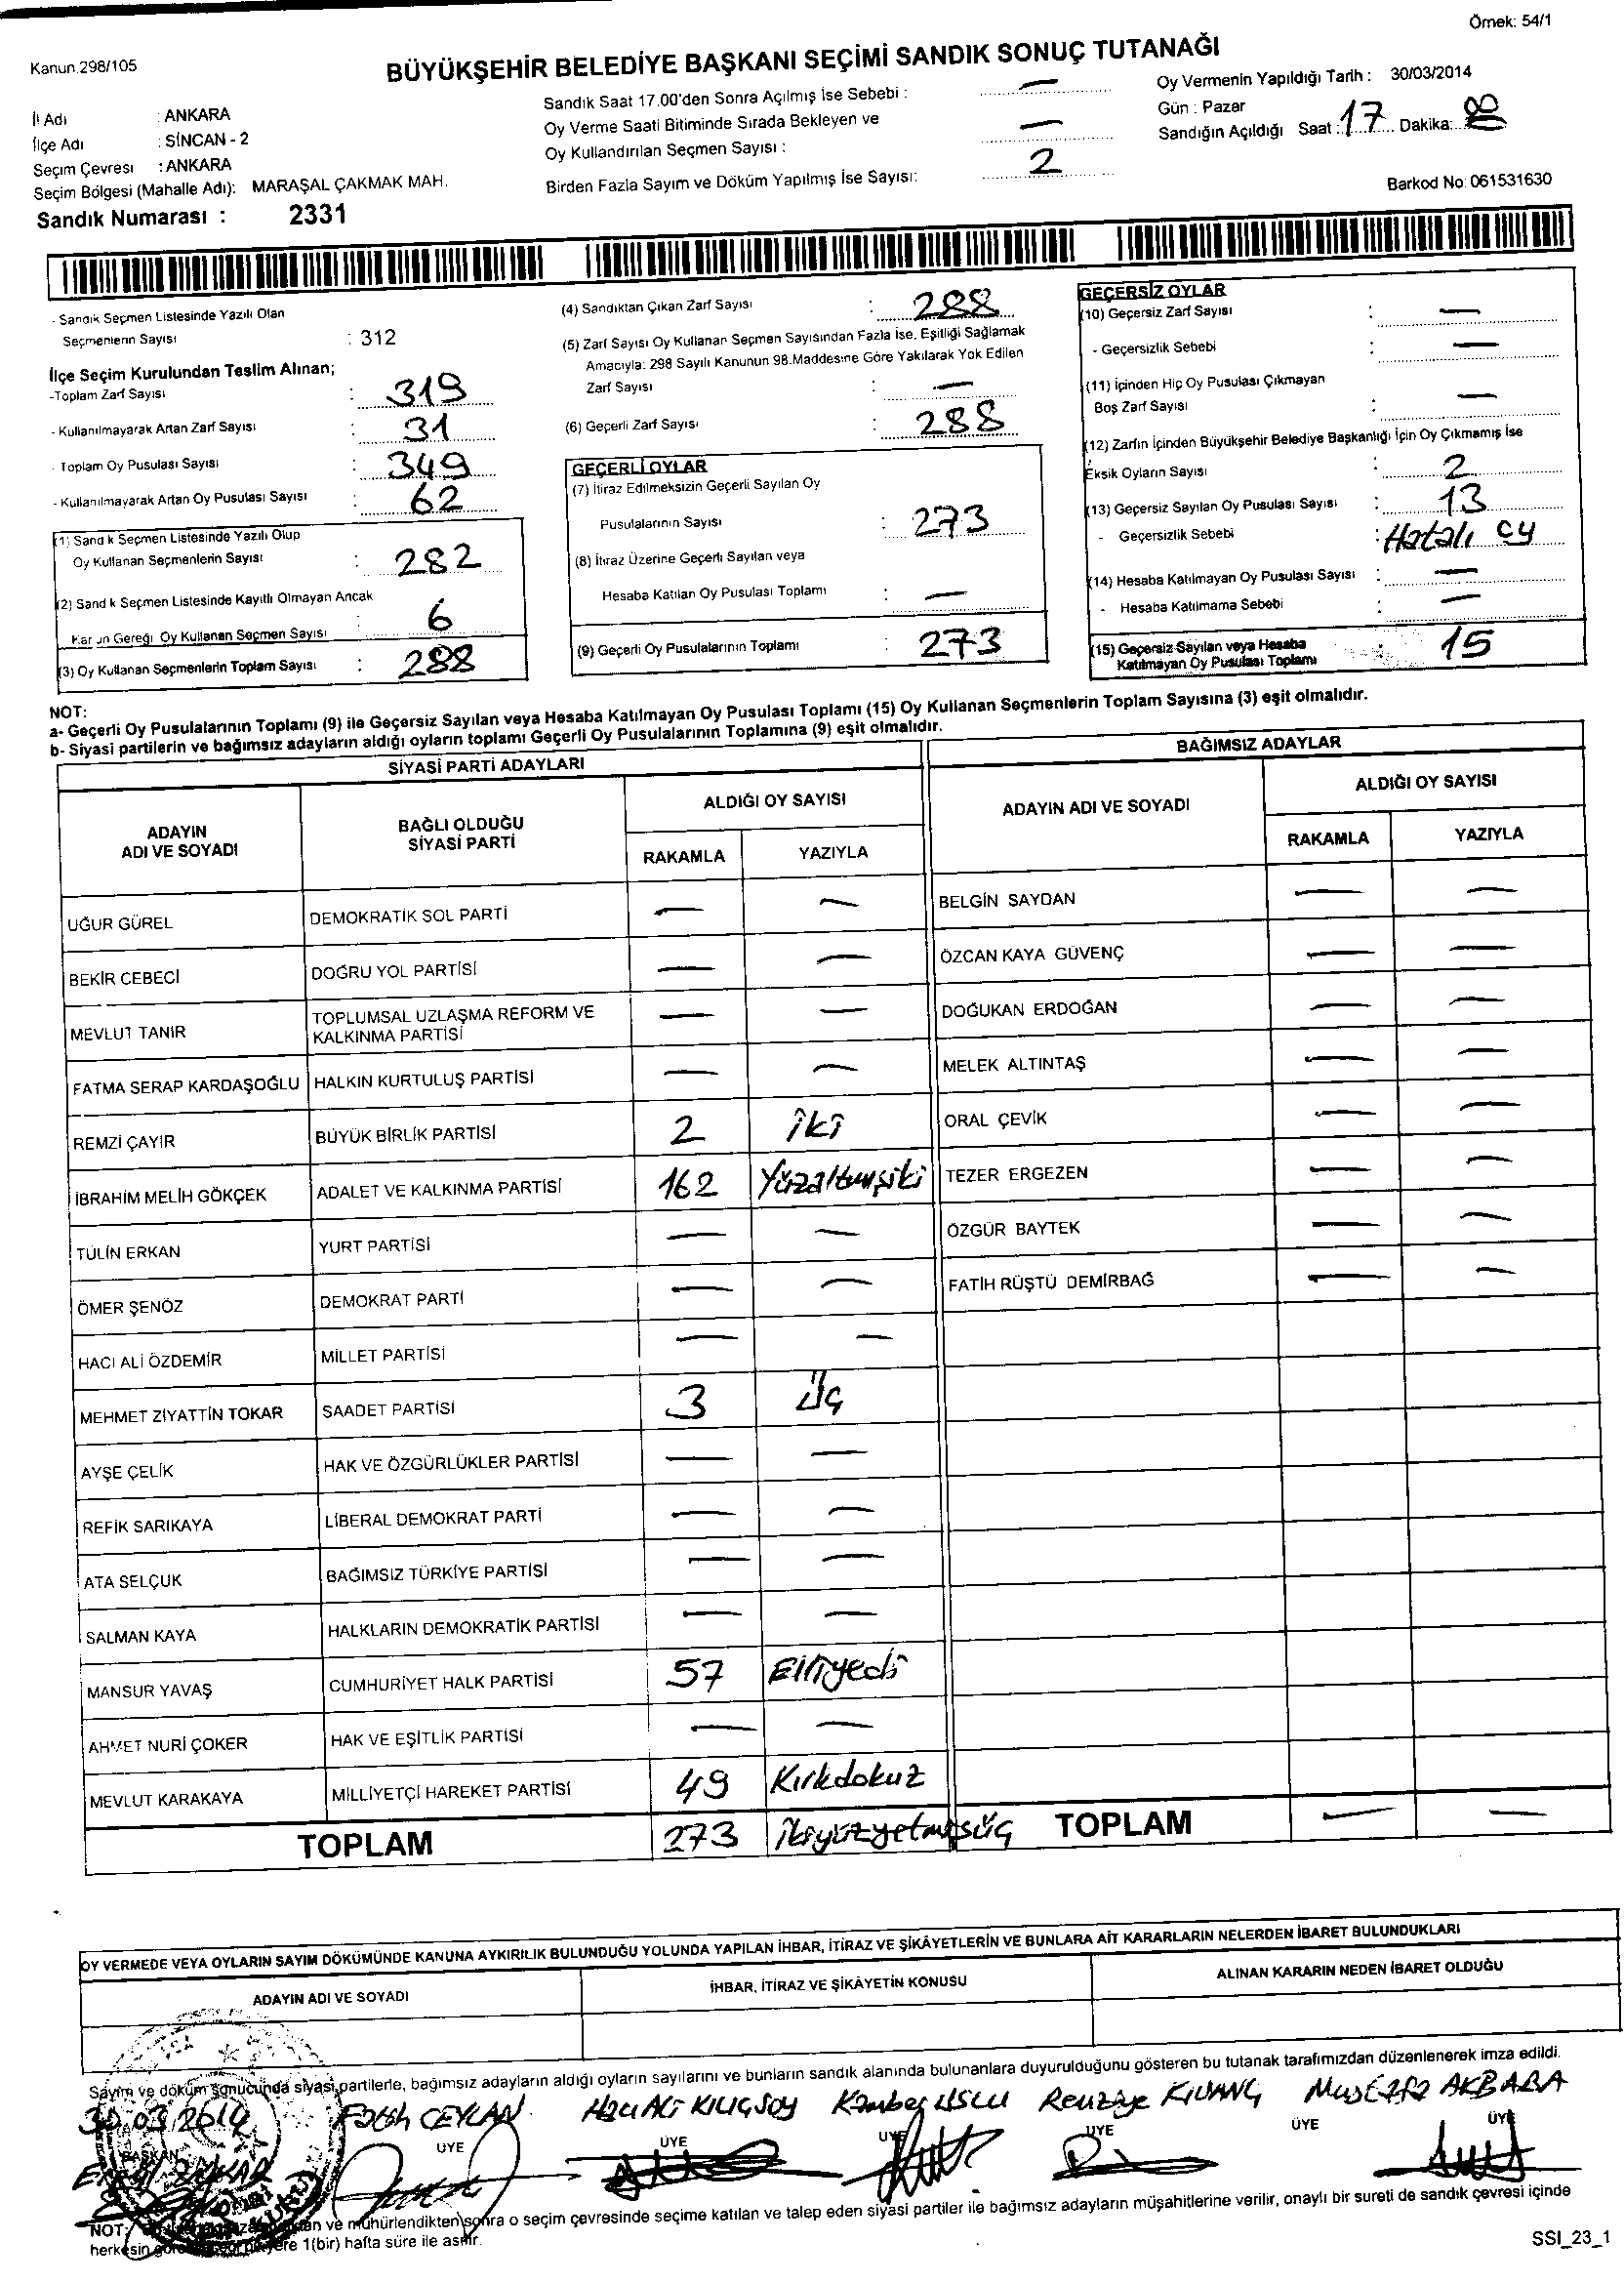 Örnek: 54/1
Kanun.298/105
BÜYÜKŞEHİR BELEDİYE BAŞKANI SEÇİMİ SANDIK SONUÇ TUTANAĞI
İl Adı : ANKARA
İlçe Adı : SİNCAN - 2
Seçim Çevresi : ANKARA
Seçim Bölgesi (Mahalle Adı): MARAŞAL ÇAKMAK MAH.
Sandık Numarası : 2331
Sandık Saat 17.00'den Sonra Açılmış İse Sebebi : —
Oy Verme Saati Bitiminde Sırada Bekleyen ve
Oy Kullandırılan Seçmen Sayısı : —
Birden Fazla Sayım ve Döküm Yapılmış İse Sayısı: 2
Oy Vermenin Yapıldığı Tarih : 30/03/2014
Gün : Pazar
Sandığın Açıldığı Saat : 17 Dakika:
Barkod No: 061531630
- Sandık Seçmen Listesinde Yazılı Olan
Seçmenlerin Sayısı : 312
İlçe Seçim Kurulundan Teslim Alınan;
-Toplam Zarf Sayısı : 319
- Kullanılmayarak Artan Zarf Sayısı : 31
- Toplam Oy Pusulası Sayısı : 349
- Kullanılmayarak Artan Oy Pusulası Sayısı : 62
(1) Sandık Seçmen Listesinde Yazılı Olup
Oy Kullanan Seçmenlerin Sayısı : 282
(2) Sandık Seçmen Listesinde Kayıtlı Olmayan Ancak
Kanun Gereği Oy Kullanan Seçmen Sayısı : 6
(3) Oy Kullanan Seçmenlerin Toplam Sayısı : 288
(4) Sandıktan Çıkan Zarf Sayısı : 288
(5) Zarf Sayısı Oy Kullanan Seçmen Sayısından Fazla İse, Eşitliği Sağlamak
Amacıyla: 298 Sayılı Kanunun 98.Maddesine Göre Yakılarak Yok Edilen
Zarf Sayısı : —
(6) Geçerli Zarf Sayısı : 288
GEÇERLİ OYLAR
(7) İtiraz Edilmeksizin Geçerli Sayılan Oy
Pusulalarının Sayısı : 273
(8) İtiraz Üzerine Geçerli Sayılan veya
Hesaba Katılan Oy Pusulası Toplamı : —
(9) Geçerli Oy Pusulalarının Toplamı : 273
GEÇERSİZ OYLAR
(10) Geçersiz Zarf Sayısı : —
- Geçersizlik Sebebi : —
(11) İçinden Hiç Oy Pusulası Çıkmayan
Boş Zarf Sayısı : —
(12) Zarfın İçinden Büyükşehir Belediye Başkanlığı İçin Oy Çıkmamış İse
Eksik Oyların Sayısı : 2
(13) Geçersiz Sayılan Oy Pusulası Sayısı : 13
- Geçersizlik Sebebi : Hatalı oy
(14) Hesaba Katılmayan Oy Pusulası Sayısı : —
- Hesaba Katılmama Sebebi : —
(15) Geçersiz Sayılan veya Hesaba
Katılmayan Oy Pusulası Toplamı : 15
NOT:
a- Geçerli Oy Pusulalarının Toplamı (9) ile Geçersiz Sayılan veya Hesaba Katılmayan Oy Pusulası Toplamı (15) Oy Kullanan Seçmenlerin Toplam Sayısına (3) eşit olmalıdır.
b- Siyasi partilerin ve bağımsız adayların aldığı oyların toplamı Geçerli Oy Pusulalarının Toplamına (9) eşit olmalıdır.
SİYASİ PARTİ ADAYLARI
ADAYIN ADI VE SOYADI BAĞLI OLDUĞU SİYASİ PARTİ ALDIĞI OY SAYISI
RAKAMLA YAZIYLA
UĞUR GÜREL DEMOKRATİK SOL PARTİ — —
BEKİR CEBECİ DOĞRU YOL PARTİSİ — —
MEVLUT TANIR TOPLUMSAL UZLAŞMA REFORM VE KALKINMA PARTİSİ — —
FATMA SERAP KARDAŞOĞLU HALKIN KURTULUŞ PARTİSİ — —
REMZİ ÇAYIR BÜYÜK BİRLİK PARTİSİ 2 iki
İBRAHİM MELİH GÖKÇEK ADALET VE KALKINMA PARTİSİ 162 Yüzaltmışiki
TÜLİN ERKAN YURT PARTİSİ — —
ÖMER ŞENÖZ DEMOKRAT PARTİ — —
HACI ALİ ÖZDEMİR MİLLET PARTİSİ — —
MEHMET ZİYATTİN TOKAR SAADET PARTİSİ 3 üç
AYŞE ÇELİK HAK VE ÖZGÜRLÜKLER PARTİSİ — —
REFİK SARIKAYA LİBERAL DEMOKRAT PARTİ — —
ATA SELÇUK BAĞIMSIZ TÜRKİYE PARTİSİ — —
SALMAN KAYA HALKLARIN DEMOKRATİK PARTİSİ — —
MANSUR YAVAŞ CUMHURİYET HALK PARTİSİ 57 Elliyedi
AHMET NURİ ÇOKER HAK VE EŞİTLİK PARTİSİ — —
MEVLUT KARAKAYA MİLLİYETÇİ HAREKET PARTİSİ 49 Kırkdokuz
TOPLAM 273 ikiyüzyetmişüç
BAĞIMSIZ ADAYLAR
ADAYIN ADI VE SOYADI ALDIĞI OY SAYISI
RAKAMLA YAZIYLA
BELGİN SAYDAN — —
ÖZCAN KAYA GÜVENÇ — —
DOĞUKAN ERDOĞAN — —
MELEK ALTINTAŞ — —
ORAL ÇEVİK — —
TEZER ERGEZEN — —
ÖZGÜR BAYTEK — —
FATİH RÜŞTÜ DEMİRBAĞ — —
TOPLAM — —
OY VERMEDE VEYA OYLARIN SAYIM DÖKÜMÜNDE KANUNA AYKIRILIK BULUNDUĞU YOLUNDA YAPILAN İHBAR, İTİRAZ VE ŞİKÂYETLERİN VE BUNLARA AİT KARARLARIN NELERDEN İBARET BULUNDUKLARI
ADAYIN ADI VE SOYADI İHBAR, İTİRAZ VE ŞİKÂYETİN KONUSU ALINAN KARARIN NEDEN İBARET OLDUĞU
Sayım ve döküm sonucunda siyasi partilerle, bağımsız adayların aldığı oyların sayılarını ve bunların sandık alanında bulunanlara duyurulduğunu gösteren bu tutanak tarafımızdan düzenlenerek imza edildi.
30.03.2014 Fatih CEYLAN Hacı Ali KILIÇSOY Kamber USLU Reuziye KIVANÇ Mustafa AKBABA
BAŞKAN ÜYE ÜYE ÜYE ÜYE ÜYE ÜYE
NOT: ve mühürlendikten sonra o seçim çevresinde seçime katılan ve talep eden siyasi partiler ile bağımsız adayların müşahitlerine verilir, onaylı bir sureti de sandık çevresi içinde
herkesin 1(bir) hafta süre ile asılır.
SSI_23_1